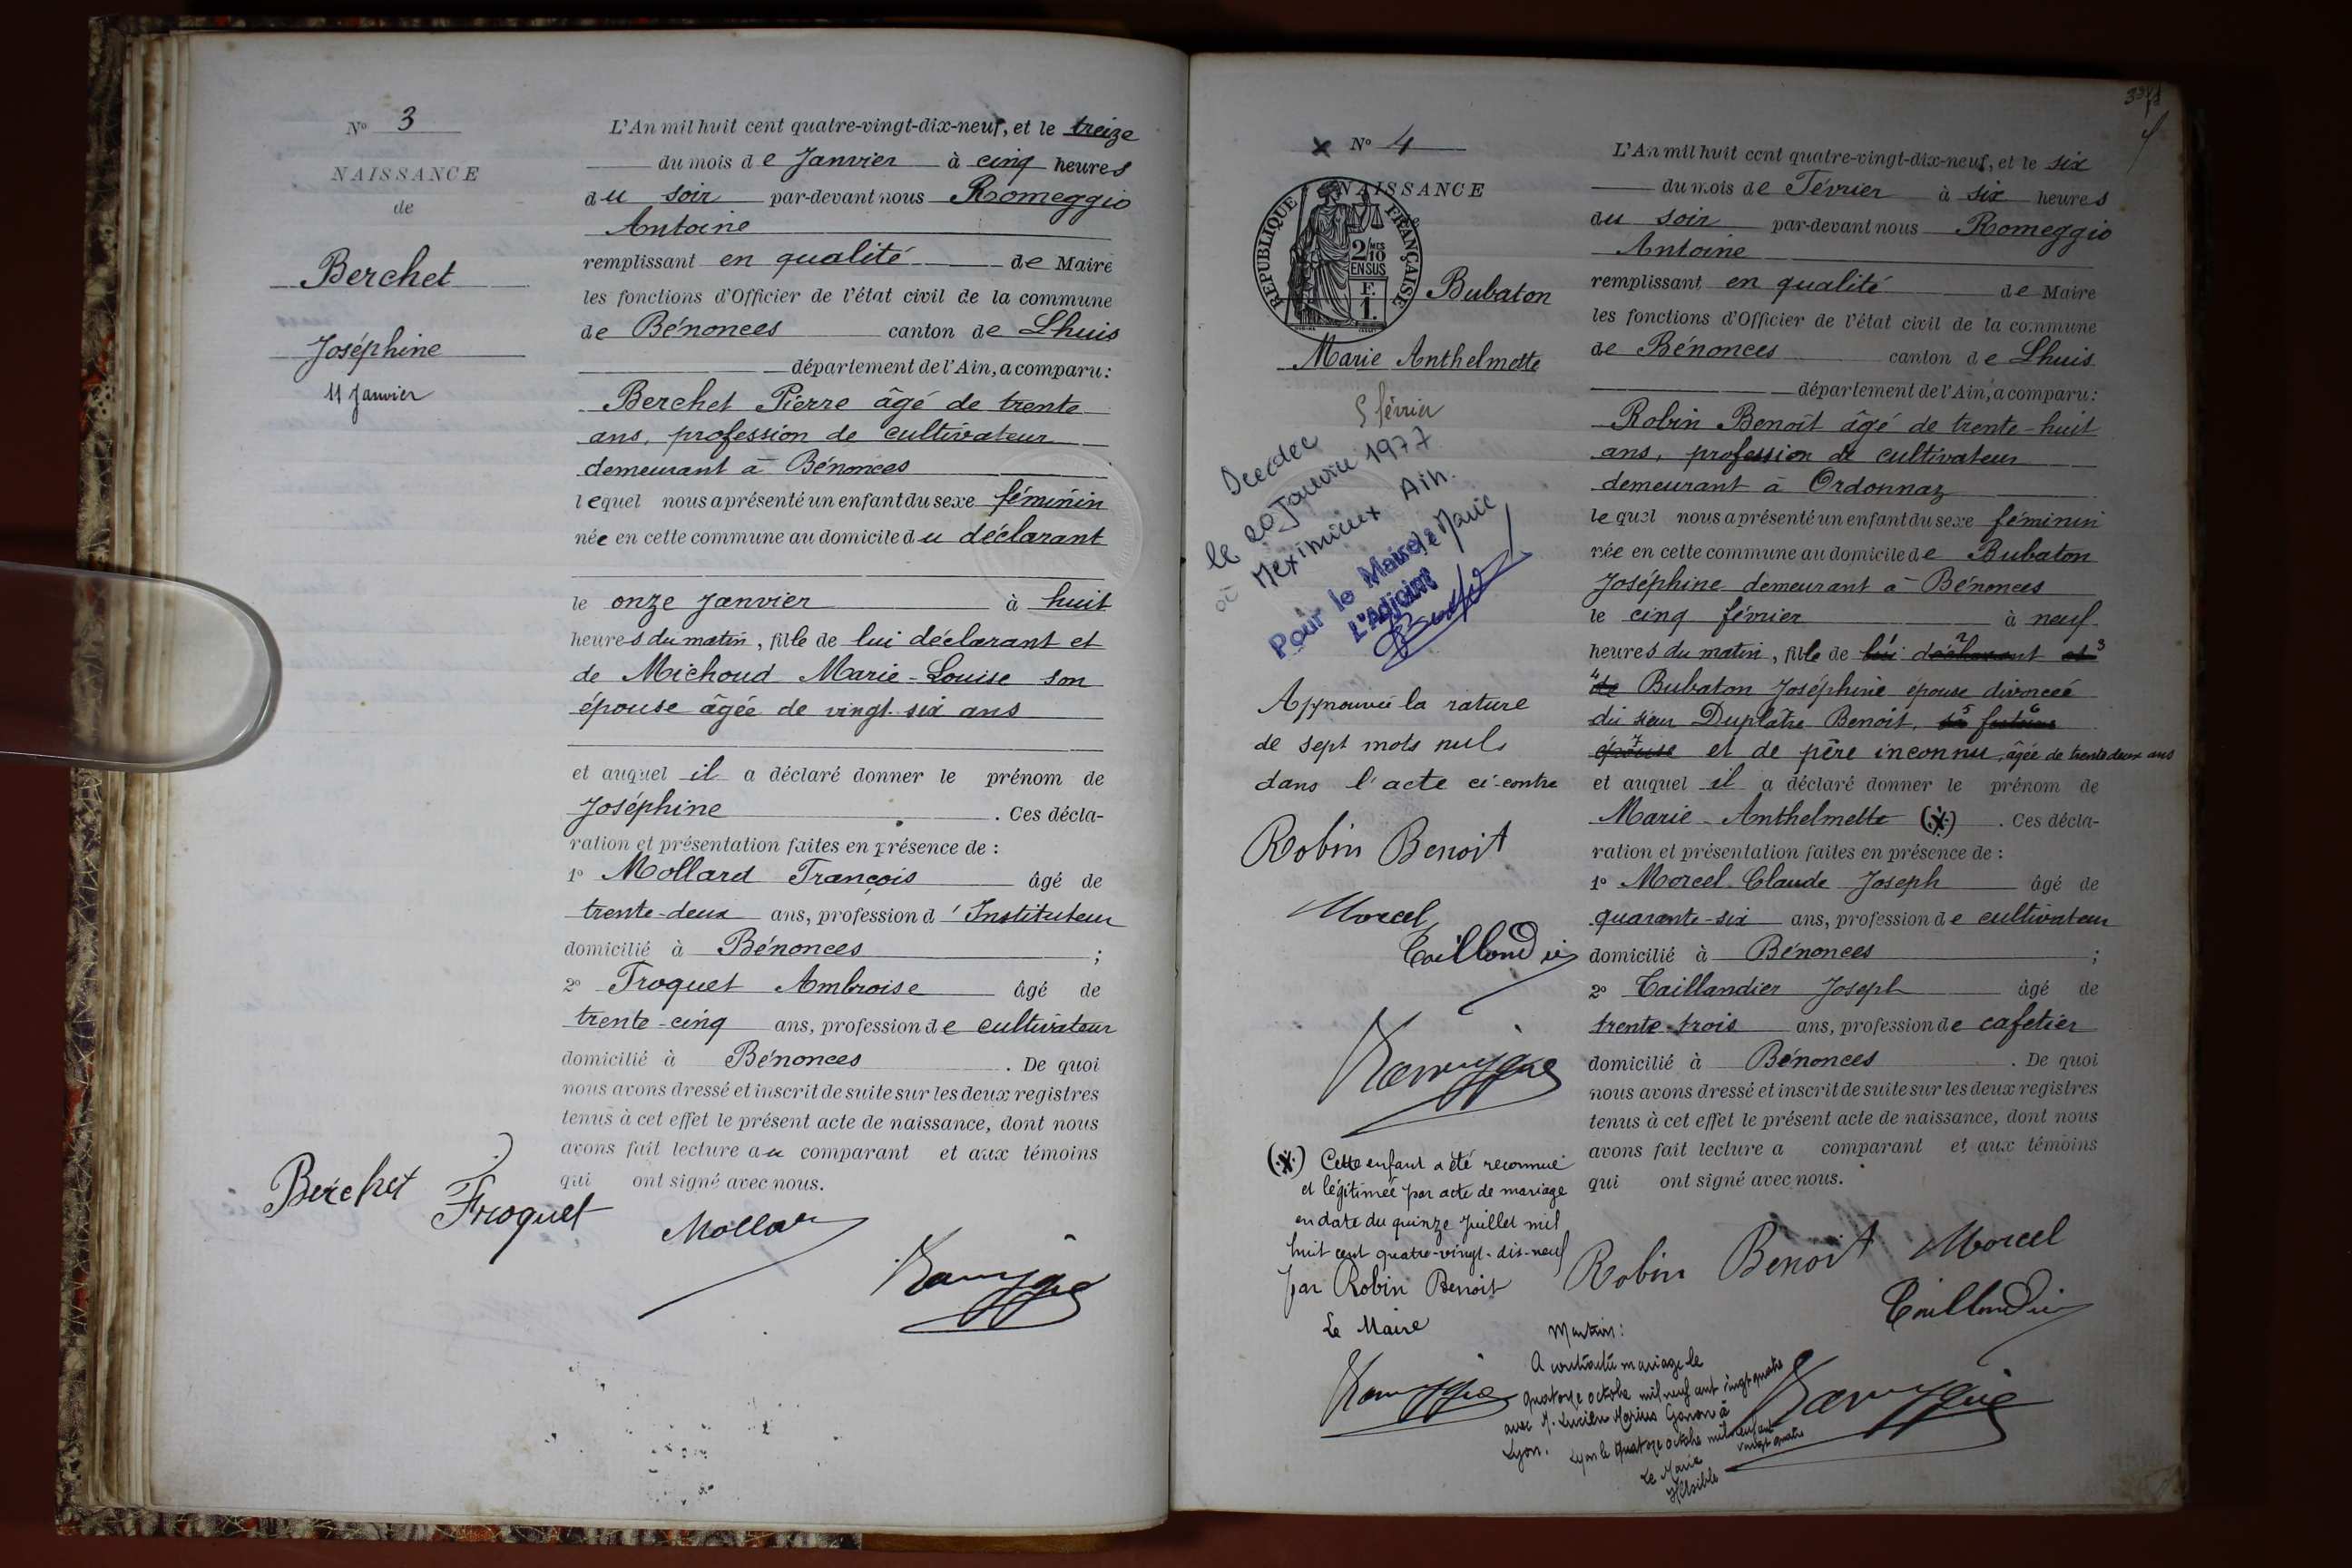 N° 3
NAISSANCE
de
Berchet
Joséphine
11 Janvier
L'An mil huit cent quatre-vingt-dix-neuf, et le treize
du mois de Janvier à cinq heures
du soir par-devant nous Romeggio
Antoine
remplissant en qualité de Maire
les fonctions d'Officier de l'état civil de la commune
de Bénonces canton de Lhuis
département de l'Ain, a comparu:
Berchet Pierre âgé de trente
ans, profession de cultivateur
demeurant à Bénonces
lequel nous a présenté un enfant du sexe féminin
née en cette commune au domicile du déclarant
le onze Janvier à huit
heures du matin, fille de lui déclarant et
de Michoud Marie-Louise son
épouse âgée de vingt-six ans
et auquel il a déclaré donner le prénom de
Joséphine. Ces décla-
ration et présentation faites en présence de :
1° Mollard François âgé de
trente-deux ans, profession d'Instituteur
domicilié à Bénonces ;
2° Froquet Ambroise âgé de
trente-cinq ans, profession de cultivateur
domicilié à Bénonces. De quoi
nous avons dressé et inscrit de suite sur les deux registres
tenus à cet effet le présent acte de naissance, dont nous
avons fait lecture au comparant et aux témoins
qui ont signé avec nous.
Berchet
Froquet
Mollar
Romeggio
N° 4
NAISSANCE
REPUBLIQUE FRANÇAISE
2/10 MES
EN SUS
F.
1.
Bubaton
Marie Anthelmette
5 février
Décédée
le 20 Janvier 1977
à Meximieux Ain.
Pour le Maire
L'Adjoint
Approuvée la rature
de sept mots nuls
dans l'acte ci-contre
Robin Benoit
Morcel
Taillandier
Romeggio
(.x.) Cette enfant a été reconnue
et légitimée par acte de mariage
en date du quinze Juillet mil
huit cent quatre-vingt-dix-neuf
par Robin Benoit
Le Maire
Romeggio
L'An mil huit cent quatre-vingt-dix-neuf, et le six
du mois de Février à six heures
du soir par-devant nous Romeggio
Antoine
remplissant en qualité de Maire
les fonctions d'Officier de l'état civil de la commune
de Bénonces canton de Lhuis
département de l'Ain, a comparu:
Robin Benoît âgé de trente-huit
ans, profession de cultivateur
demeurant à Ordonnaz
lequel nous a présenté un enfant du sexe féminin
née en cette commune au domicile de Bubaton
Joséphine demeurant à Bénonces
le cinq février à neuf
heures du matin, fille de lui 1 déclarant 2 et 3
4 de Bubaton Joséphine épouse divorcée
du sieur Duplâtre Benoit, 5 6
épouse 7 et de père inconnu, âgée de trente deux ans
et auquel il a déclaré donner le prénom de
Marie-Anthelmette (.x.). Ces décla-
ration et présentation faites en présence de :
1° Morcel Claude Joseph âgé de
quarante-six ans, profession de cultivateur
domicilié à Bénonces ;
2° Taillandier Joseph âgé de
trente-trois ans, profession de cafetier
domicilié à Bénonces. De quoi
nous avons dressé et inscrit de suite sur les deux registres
tenus à cet effet le présent acte de naissance, dont nous
avons fait lecture a comparant et aux témoins
qui ont signé avec nous.
Robin Benoit Morcel
Taillandier
Romeggio
Mention:
A contracté mariage le
quatorze octobre mil neuf cent vingt quatre
avec M. Lucien Marius Gonon à
Lyon. Lyon le quatorze octobre mil neuf cent
vingt quatre
Le Maire
Illisible